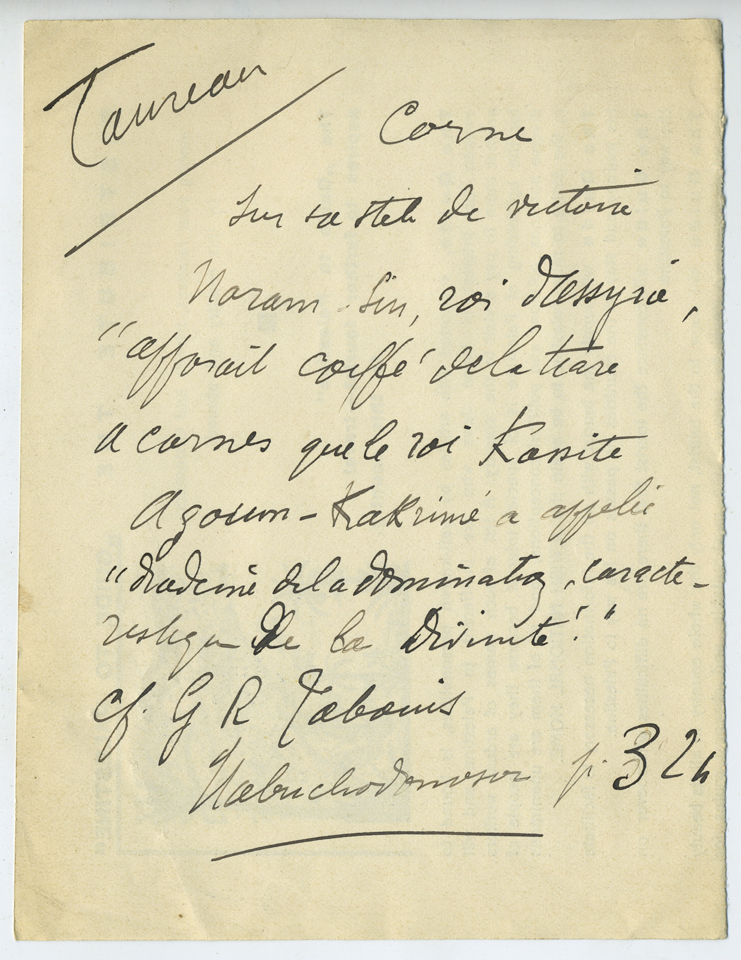 Taureau
Corne
Sur sa stele de victoire
Naram-Sin, roi d'Assyrie,
"apparait coiffé de la tiare
a cornes que le roi Kassite
Agoum-Kakrimé a appelée
"diademe de la domination, caracte-
ristique de la divinité."
cf. G R Tabouis
Nabuchodonosor p. 324